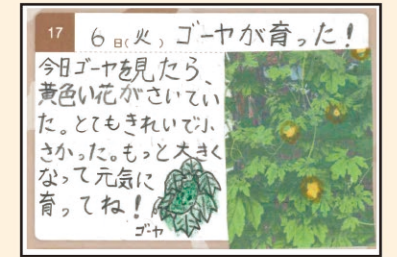 17 6日(火) ゴーヤが育った!
今日ゴーヤを見たら、
黄色い花がさいてい
た。とてもきれいで小
さかった。もっと大きく
なって元気に
育ってね!
ゴーヤ